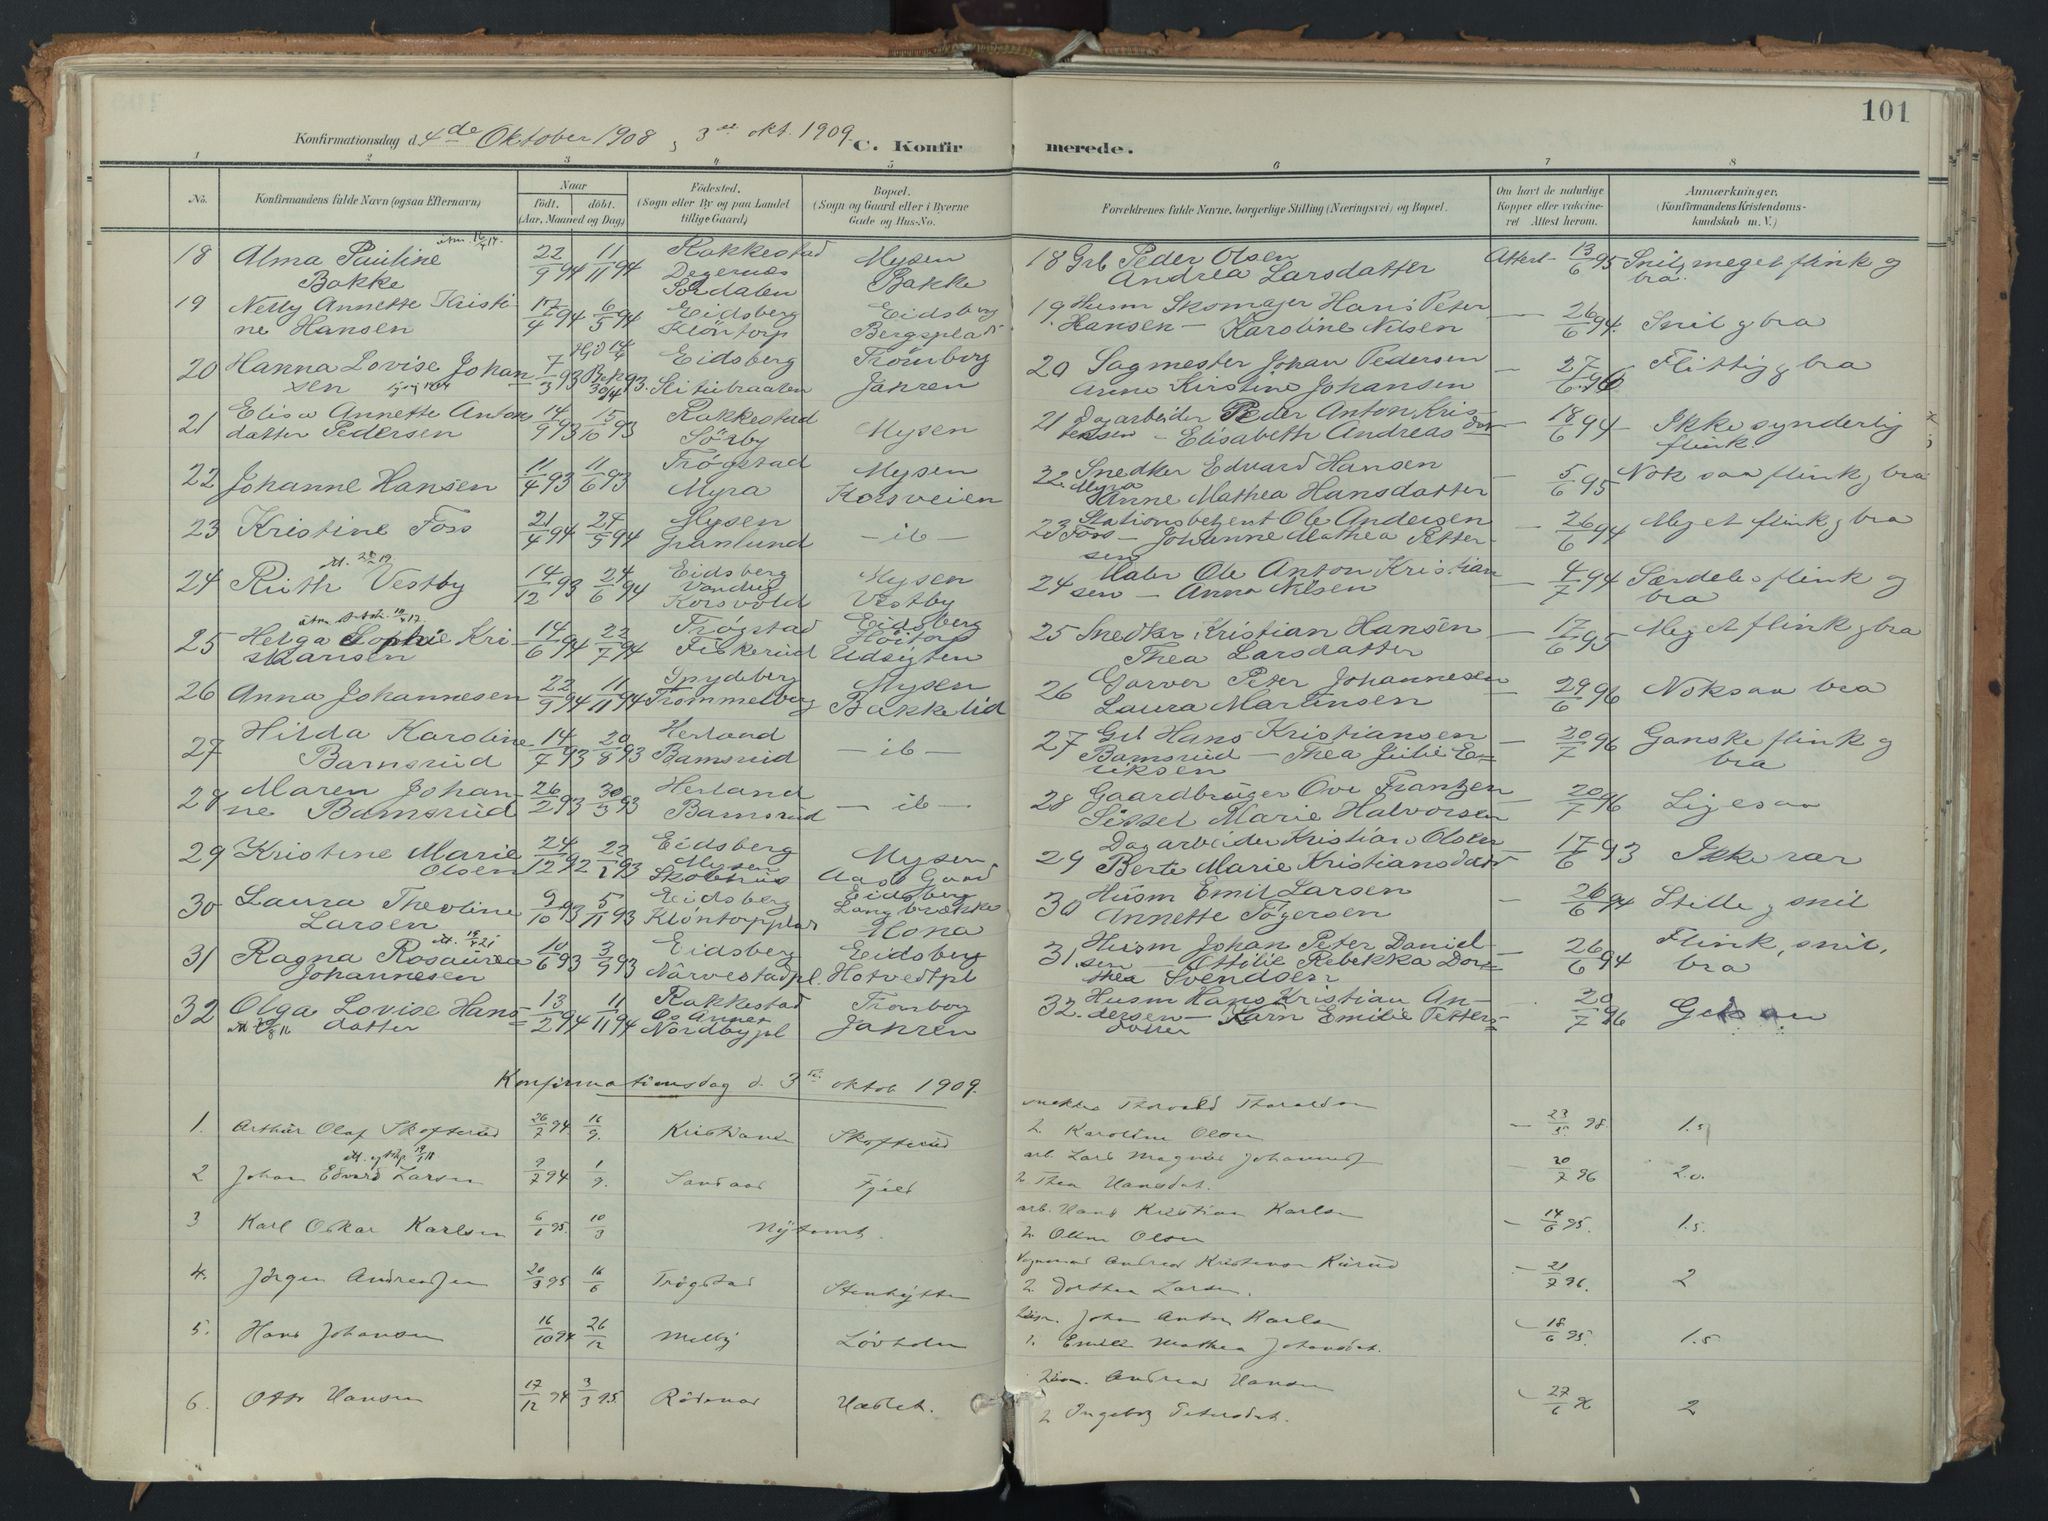 101
Konfirmationsdag d. 4de Oktober 1908, 3die okt. 1909.
C. Konfirmerede.
1 2 3 4 5 6 7 8
No.
Konfirmandens fulde Navn (ogsaa Efternavn)
Naar
født. døbt.
(Aar, Maaned og Dag)
Fødested.
(Sogn eller By og paa Landet
tillige Gaard)
Bopæl.
(Sogn og Gaard eller i Byerne
Gade og Hus-No.
Forældrenes fulde Navne, borgerlige Stilling (Næringsvei) og Bopæl.
Om havt de naturlige
Kopper eller vakcine-
ret Attest herom.
Anmærkninger.
(Konfirmandens Kristendoms-
kundskab m. V.)
18 Alma Pauline Bakke 22/9 94 11/11 94 Rakkestad Degernæs Mysen Bakke
18 Grb Peder Olsen Andrea Larsdatter Attest 13/6 95 Snil, meget flink og bra
19 Nelly Annette Kristine Hansen 17/4 94 6/5 94 Eidsberg Klöntorp Eidsberg Bergsplads
19 Husm Skomager Hans Peter Hansen – Karoline Nilsen – 26/6 94. Snil og bra
20 Hanna Lovise Johansen 7/3 93 Eidsberg Trömborg Jahren
20 Sagmester Johan Pedersen Anne Kirstine Johansen – 27/6 96 Flittig og bra
21 Elisa Annette Antonsdatter Pedersen 14/9 93 15/10 93 Rakkestad Sörby Mysen
21 Dagarbeider Peder Anton Kristensen – Elisabeth Andreasdatter – 18/6 94 – Ikke synderlig flink
22 Johanne Hansen 11/4 93 11/6 93 Trögstad Myra Mysen Korsveien
22 Snedker Edvard Hansen Myra Anne Mathea Hansdatter – 5/6 95 Nok saa flink og bra
23 Kristine Foss 21/4 94 24/5 94 Mysen Granlund – ib –
23 Stationsbetjent Ole Andersen Foss – Johanne Mathea Pettersen – 26/6 94 Meget flink og bra
24 Ruth Vestby 14/12 93 24/6 94 Eidsberg Korsvold Mysen Vestby
24 Maler Ole Anton Kristiansen – Anna Nilsen – 4/7 94 Særdeles flink og bra
25 Helga Sophie Kristiansen 14/6 94 22/7 94 Trögstad Fiskerud Eidsberg Höitorp Udsigten
25 Snedker Kristian Hansen Thea Larsdatter – 17/6 95 Meget flink og bra
26 Anna Johannesen 22/9 94 11/11 94 Spydeberg Trommelberg Mysen Bakkelid
26 Garver Peter Johannesen Laura Martinsen – 29/6 96 Noksaa bra
27 Hilda Karoline Bamsrud 14/7 93 20/8 93 Herland Bamsrud – ib –
27 Grb Hans Kristiansen Bamsrud – Thea Julie Eriksen – 20/7 96 Ganske flink og bra
28 Maren Johanne Bamsrud 26/2 93 30/3 93 Herland Bamsrud – ib –
28 Gaardbruger Ove Frantzen Sissel Marie Halvorsen – 20/7 96 Ligesaa
29 Kristine Marie Olsen 24/12 92 22/1 93 Eidsberg Mysen Skolehus Mysen Aas Gaard
29 Dagarbeider Kristian Olsen Berte Marie Kristiansdatter – 17/6 93 Ikke rar
30 Laura Theoline Larsen 9/10 93 5/11 93 Eidsberg Klöntorpplads Eidsberg Langbrække Mona
30 Husm Emil Larsen Annette Tögersen – 26/6 94 Stille og snil
31 Ragna Rosaurea Johannesen 10/6 93 3/9 93 Eidsberg Narvestadpl. Eidsberg Hotvedtpl
31 Husm Johan Peter Danielsen – Ottilie Rebekka Dorthea Svendsen – 26/6 94 Flink, snil, bra
32 Olga Lovise Hansdatter 13/2 94 11/11 94 Rakkestad Os Annex Nordbypl Tromborg Jahren
32. Husm Hans Kristian Andersen – Karn Emilie Pettersdatter 20/7 96
Konfirmationsdag d. 3die oktob. 1909.
1. Arthur Olaf Skofterud 26/7 94 16/9. Kristiania Skofterud
Thorvald Thoraldsen 2. Karoline Olsen – 23/5. 98. 1.5
2 Johan Edvard Larsen 9/7 94 1/9. Sandaas Fjeld
arb. Lars Magnus Johannes 2. Thea Hansdat. – 20/7 96 2.0.
3 Karl Oskar Karlsen 6/1 95. 10/3 Nytomt
arb. Hans Kristian Karlsen 2. Oline Olsen – 14/6 95. 1.5.
4. Jörgen Andreassen 20/3 95 16/6 Trögstad Stenhytten
Andreas Kristensen Rusrud 2. Dorthea Larsen. – 21/7 96. 2
5. Hans Johansen 16/10 94 26/12 Melby Lövholm
Johan Anton Karlsen 1. Emilie Mathea Johansdat. 18/6 95. 1.5
6. Otto Hansen 17/12 94 3/3 95. Rödenes Haslet.
Andreas Hansen 2 Ingeborg Petersdat. 27/6 96 2